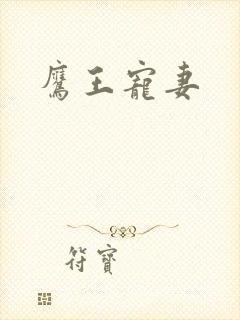 鷹王寵妻
符寶